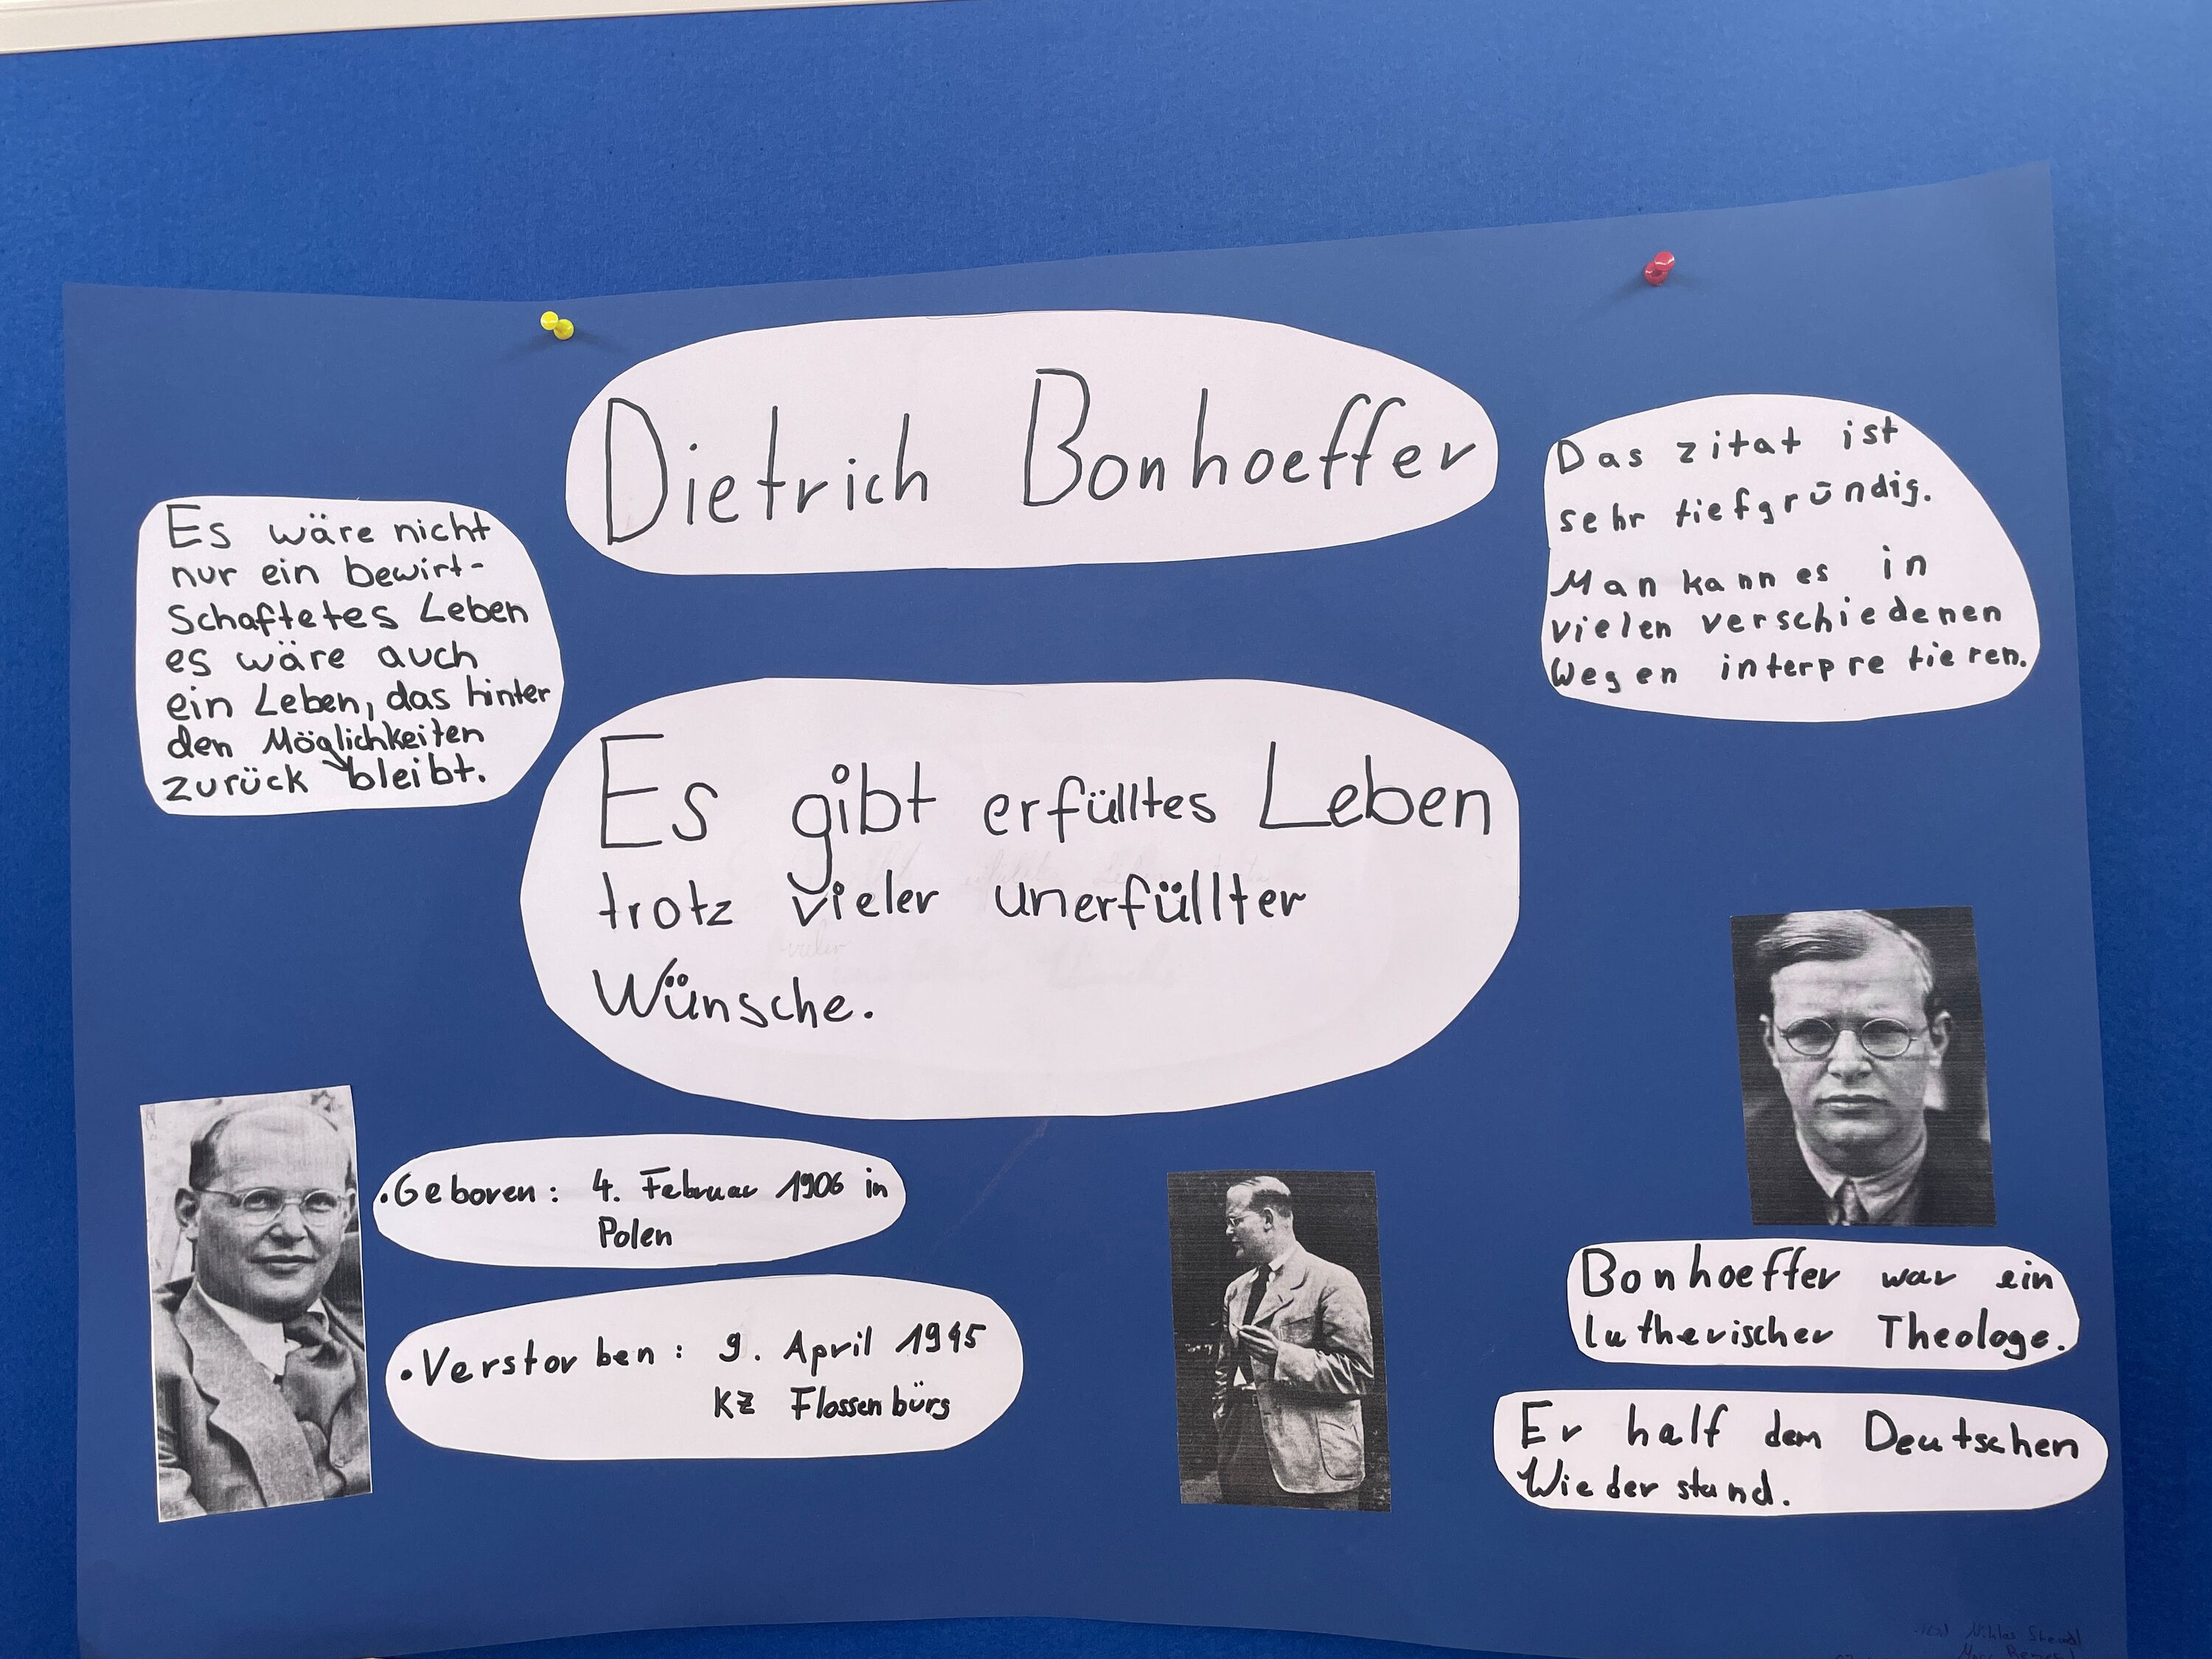 Dietrich Bonhoeffer
Es wäre nicht
nur ein bewirt-
schaftetes Leben
es wäre auch
ein Leben, das hinter
den Möglichkeiten
zurück bleibt.
Das zitat ist
sehr tiefgründig.
Man kann es in
vielen verschiedenen
Wegen interpretieren.
Es gibt erfülltes Leben
trotz vieler unerfüllter
Wünsche.
•Geboren: 4. Februar 1906 in
Polen
•Verstorben: 9. April 1945
KZ Flossenbürg
Bonhoeffer war ein
lutherischer Theologe.
Er half dem Deutschen
Wiederstand.
Niklas